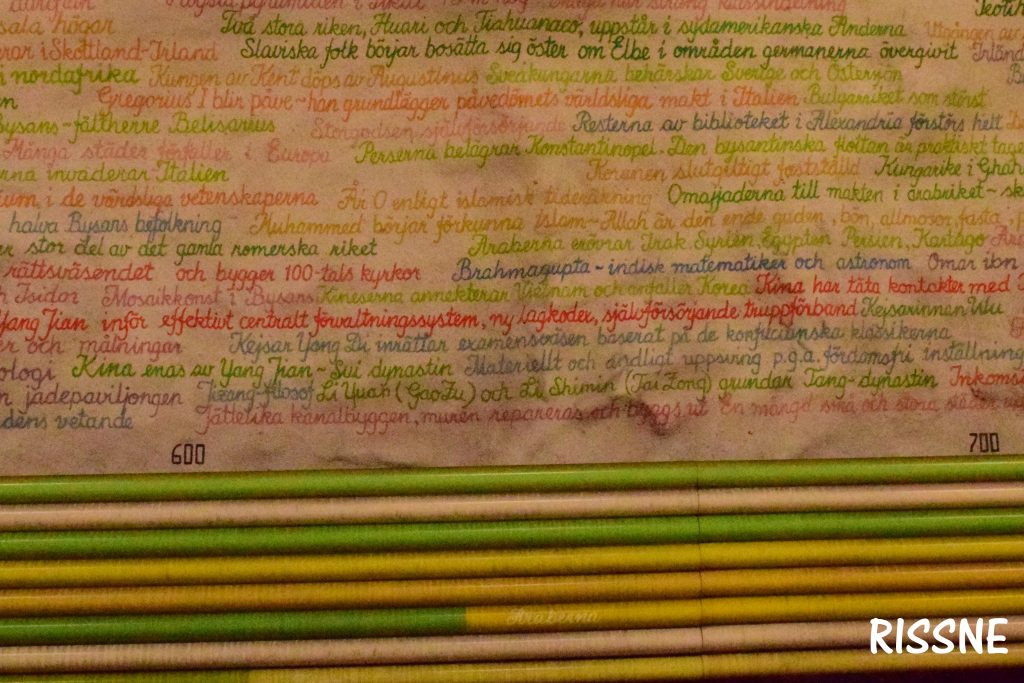 Mång här sträng klassindelning
sala högar Två stora riken, Huari och Tiahuanaco, uppstår i sydamerikanska Anderna Utgången av
eror i Skottland-Irland Slaviska folk börjar bosätta sig öster om Elbe i områden germanerna övergivit Irländ
i nordafrika Kungen av Kent döps av Augustinus Sveakungarna behärskar Sverige och Österön
Gregorius I blir påve - han grundlägger påvedömets världsliga makt i Italien Bulgarriket som störst
Bysans-fältherre Belisarius Storgodsen, självförsörjande Resterna av biblioteket i Alexandria förstörs helt
Många städer förfaller i Europa Perserna belägrar Konstantinopel. Den bysantinska flottan är praktiskt tage
erna invaderar Italien Koranen slutgiltigt fastställd Kungarike i Ghan
um, i de världsliga vetenskaperna År 0 enligt islamisk tideräkning Omajjaderna till makten i arabriket - sk
halva Bysans befolkning Muhammed börjar förkunna islam - Allah är den ende guden, bön, allmosor, fasta,
er stor del av det gamla romerska riket Araberna erövrar Irak, Syrien, Egypten, Persien, Kartago
rättsväsendet och bygger 100-tals kyrkor Brahmagupta - indisk matematiker och astronom Omar ibn
Isidor Mosaikkonst i Bysans Kineserna annekterar Vietnam och anfaller Korea Kina har täta kontakter med
Yang Jian inför effektivt centralt förvaltningssystem, ny lagkoder, självförsörjande truppförband Kejsarinnan Wu
er och målningar Kejsar Yang Di inrättar examensväsen baserat på de konfucianska klassikerna
ologi Kina enas av Yang Jian - Sui dynastin Materiellt och andligt uppsving p.g.a. fördomsfri inställning
n jadepaviljongen Tizang-filosof Li Yuan (Gao Zu) och Li Shimin (Tai Zong) grundar Tang-dynastin Inkoms
dens vetande Jättelika kanalbyggen, muren repareras och byggs ut En mängd små och stora städer
600 700
Araberna
RISSNE